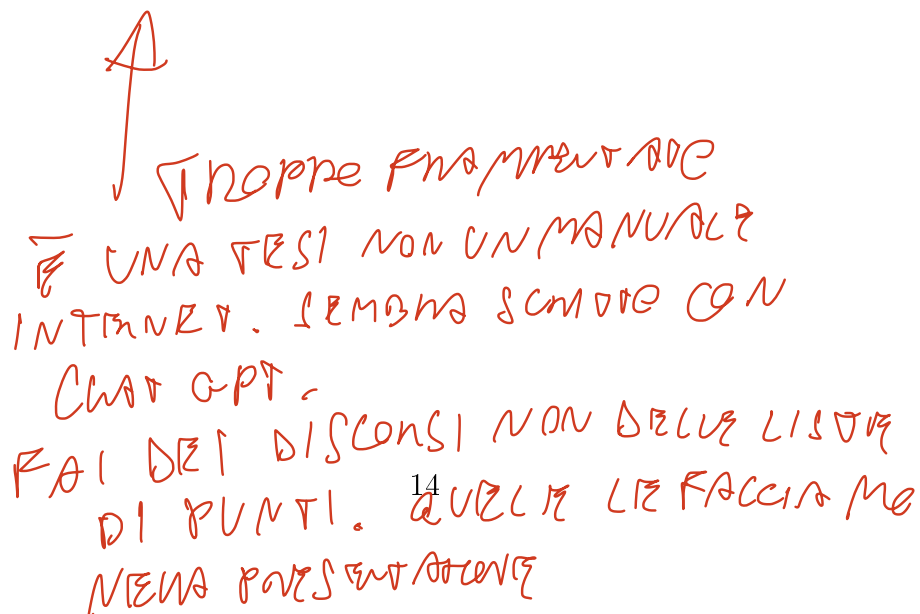 TROPPO FRAMMENTATO
È UNA TESI NON UN MANUALE
INTERNET. SEMBRA SCRITTO CON
CHAT GPT.
FAI DEI DISCORSI NON DELLE LISTE
14
DI PUNTI. QUELLE LE FACCIAMO
NELLA PRESENTAZIONE